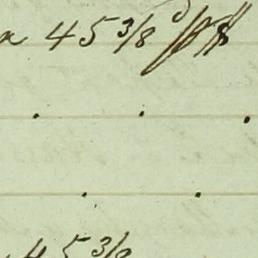 a 45 3/8
45 3/8